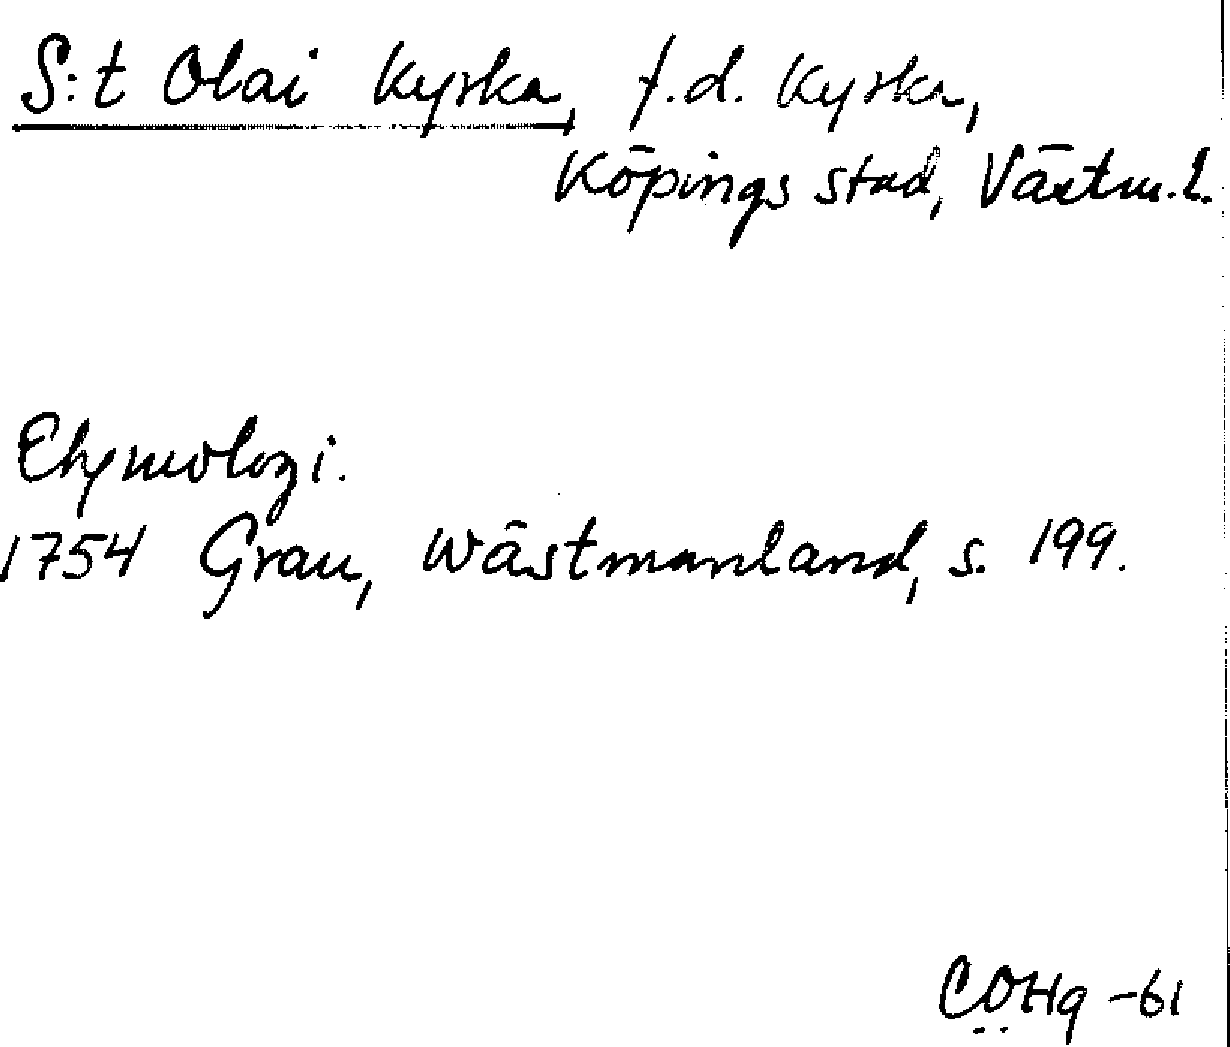 S:t Olai Kyrka, f.d. Kyrka,
Köpings stad, Västm.l.
Etymologi.
1754 Grau, Wästmanland, s. 199.
COHg -61